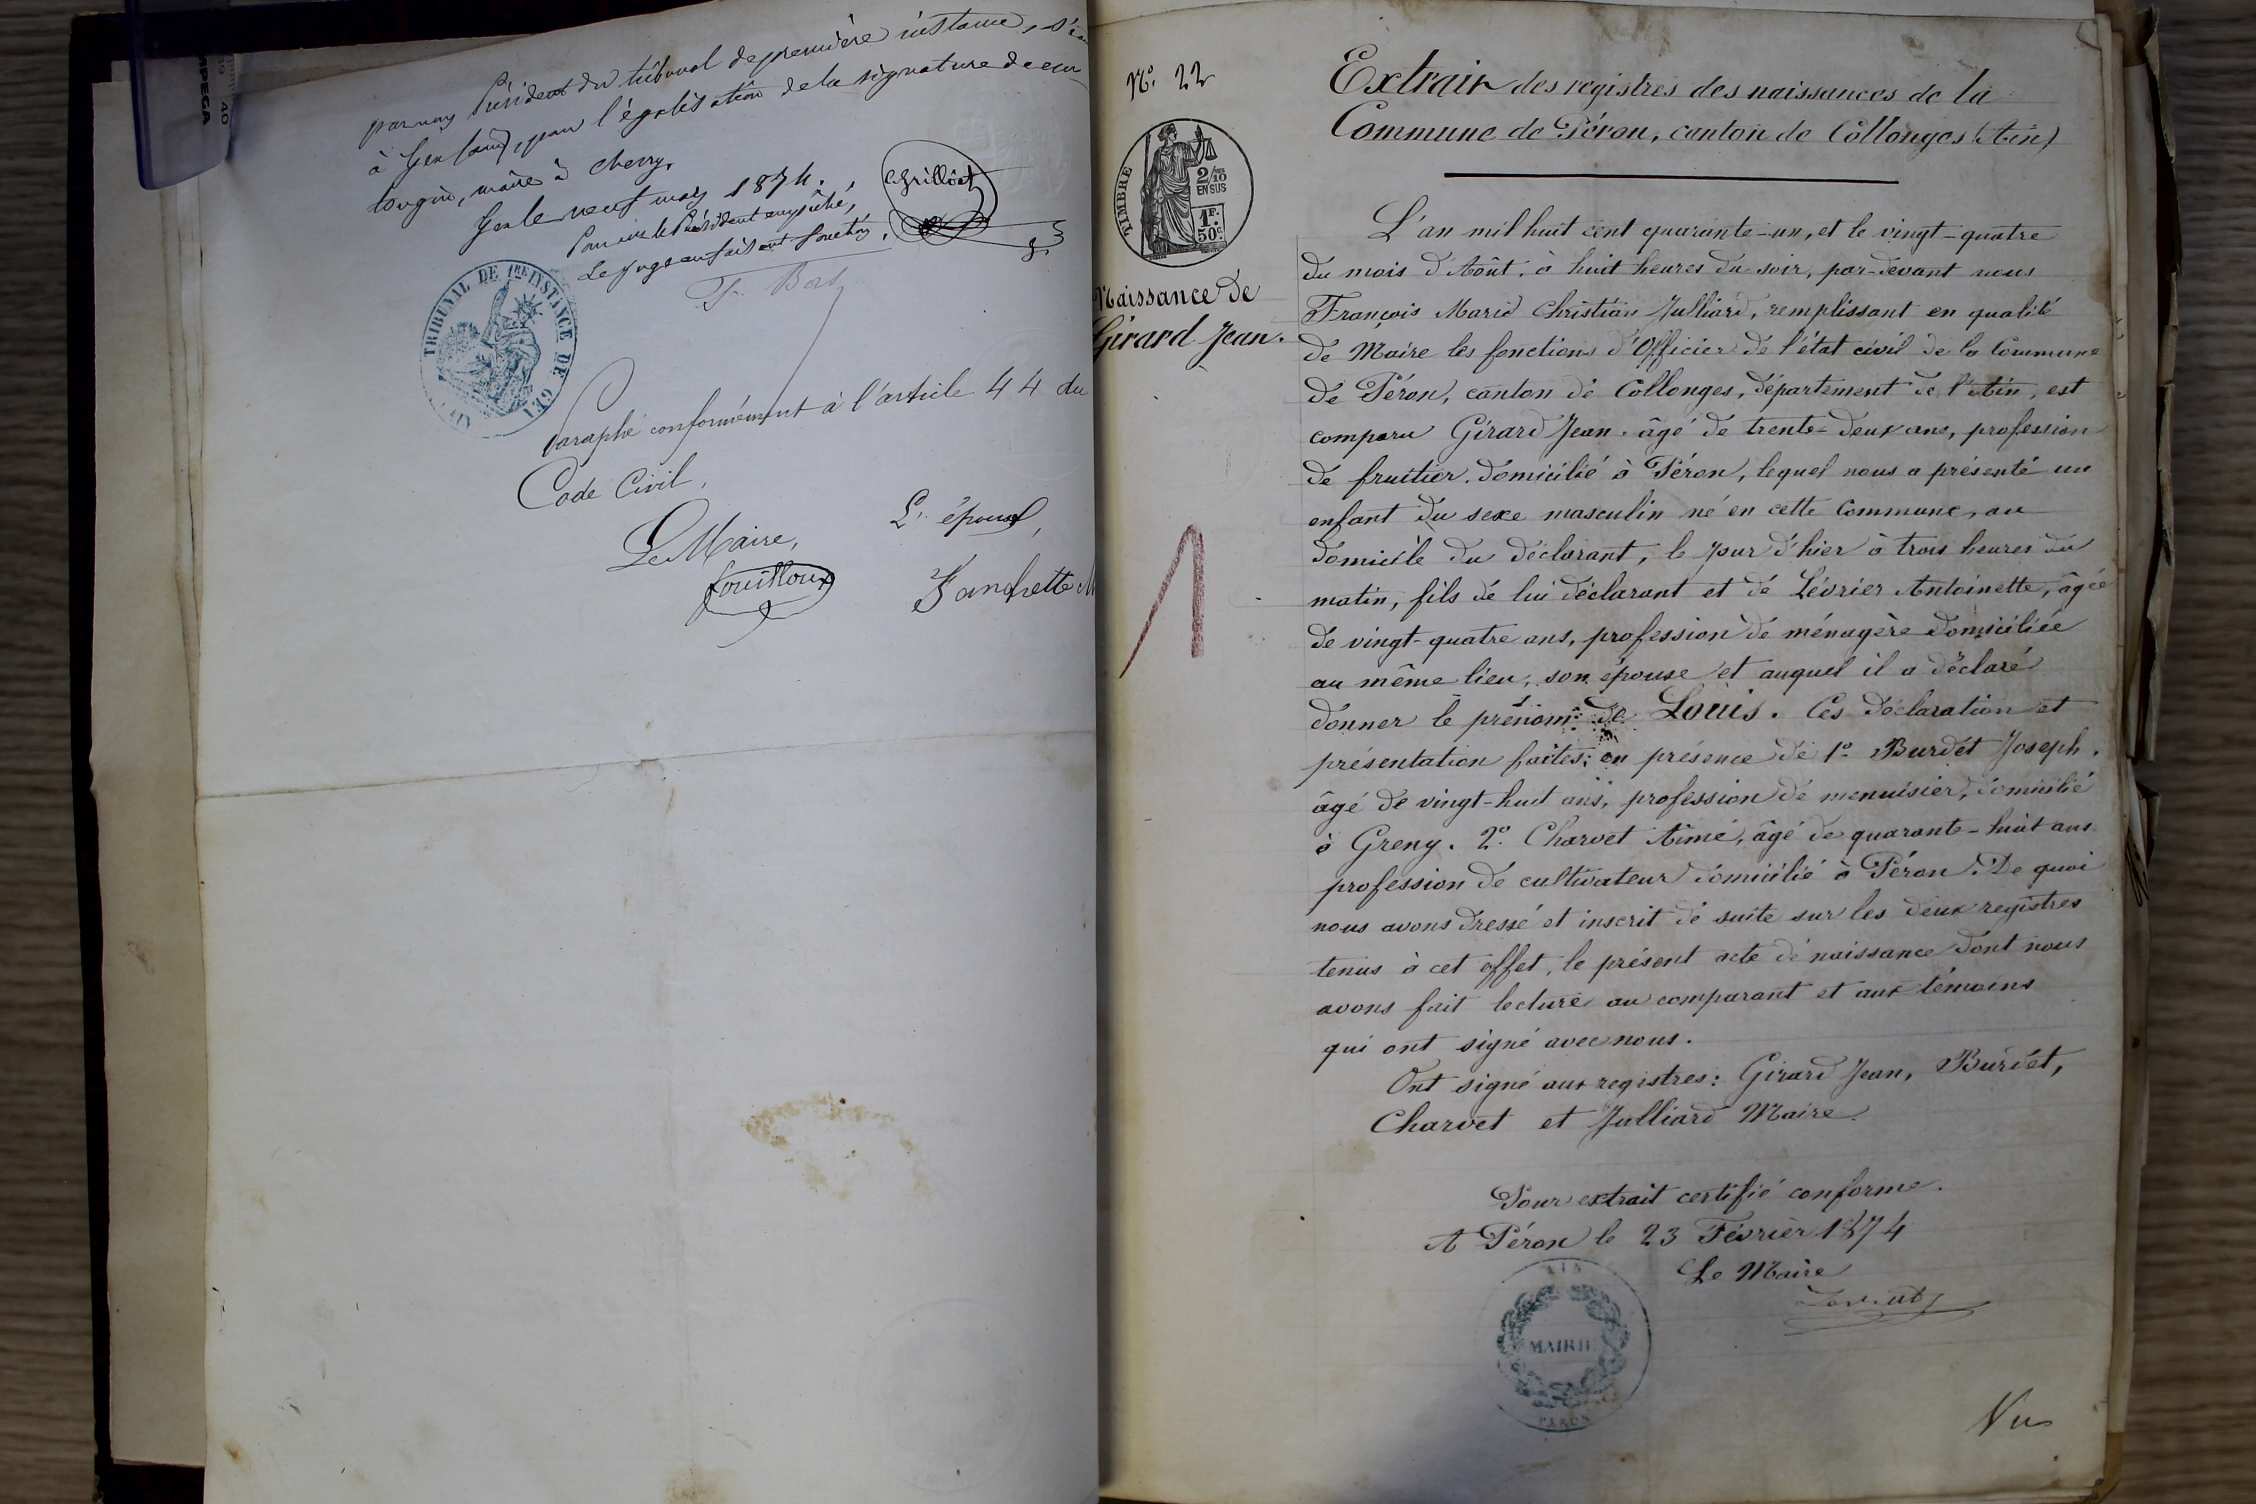 par nous Président du tribunal de première instance, s'éant
à Gex (ain), pour légalisation de la signature de
tougin, maire à Chevry.
Gex le neuf mars 1874.
Pour le Président empêché,
Le Juge en faisant fonction,
C. Grillet
TRIBUNAL DE 1RE INSTANCE DE GEX
Paraphé conformément à l'article 44 du
Code Civil,
Le Maire,
L'épouse,
Fouilloux
Fanchette
N° 22
TIMBRE
2/10
EN SUS
1F.
50c.
Naissance de
Girard Jean.
Extrait des registres des naissances de la
Commune de Péron, canton de Collonges (Ain)
L'an mil huit cent quarante-un, et le vingt-quatre
du mois d'Août, à huit heures du soir, par-devant nous
François Marie Christian Julliard, remplissant en qualité
de Maire les fonctions d'Officier de l'état civil de la Commune
de Péron, canton de Collonges, département de l'Ain, est
comparu Girard Jean. âgé de trente-deux ans, profession
de fruitier. domicilié à Péron, lequel nous a présenté un
enfant du sexe masculin né en cette Commune, au
domicile du déclarant, le jour d'hier à trois heures du
matin, fils de lui déclarant et de Lévrier Antoinette, âgée
de vingt-quatre ans, profession de ménagère domiciliée
au même lieu, son épouse et auquel il a déclaré
donner le prénom de Louis. Ces déclaration et
présentation faites en présence de 1° Burdet Joseph.
âgé de vingt-huit ans, profession de menuisier, domicilié
à Greny. 2° Charvet Aimé, âgé de quarante-huit ans
profession de cultivateur domicilié à Péron. De quoi
nous avons dressé et inscrit de suite sur les deux registres
tenus à cet effet, le présent acte de naissance dont nous
avons fait lecture au comparant et aux témoins
qui ont signé avec nous.
Ont signé aux registres: Girard Jean, Burdet,
Charvet et Julliard Maire.
Pour extrait certifié conforme.
A Péron le 23 Février 1874
Le Maire
AIN
MAIRIE
PERON
Vu